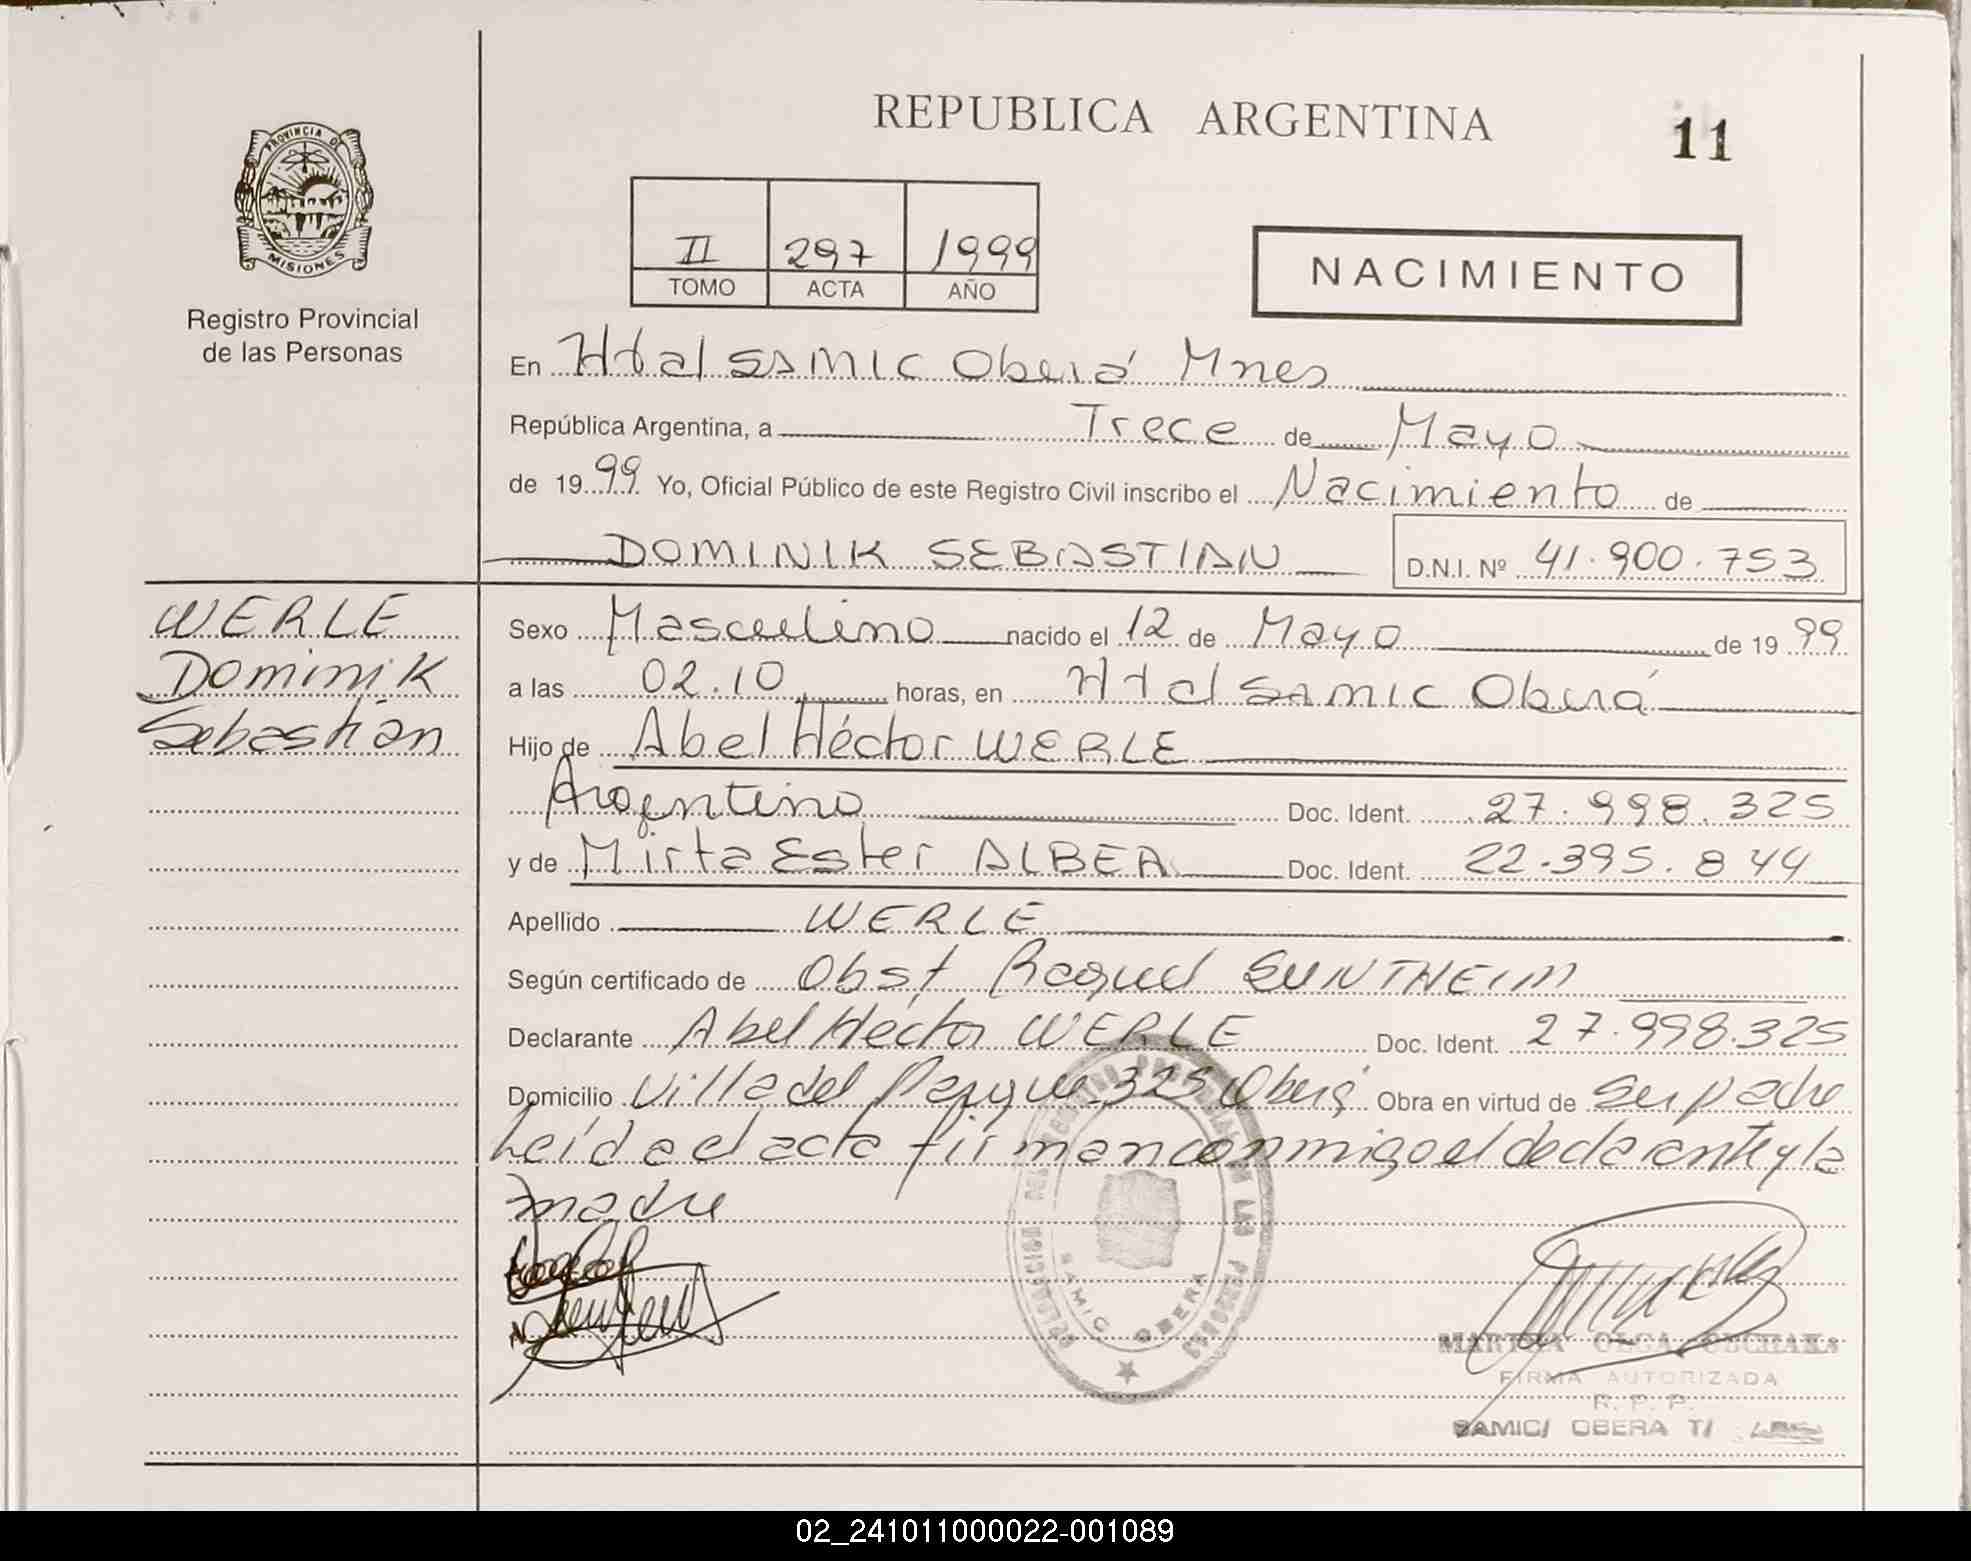 REPUBLICA ARGENTINA
11
PROVINCIA DE
MISIONES
Registro Provincial
de las Personas
II 297 1999
TOMO ACTA AÑO
NACIMIENTO
En Htal SAMIC Oberá Mnes
República Argentina, a Trece de Mayo
de 1999 Yo, Oficial Público de este Registro Civil inscribo el Nacimiento de
DOMINIK SEBASTIAN D.N.I. Nº 41.900.753
WERLE
Dominik
Sebastián
Sexo Masculino nacido el 12 de Mayo de 1999
a las 02.10 horas, en Htal SAMIC Oberá
Hijo de Abel Héctor WERLE
Argentino Doc. Ident. 27.998.325
y de Mirta Ester ALBEA Doc. Ident. 22.395.844
Apellido WERLE
Según certificado de Obst. Raquel SUNTHEIM
Declarante Abel Héctor WERLE Doc. Ident. 27.998.325
Domicilio Villa del Parque 325 Oberá Obra en virtud de Ser padre
Leída el acta firman conmigo el declarante y la
madre
DELEGACION DEL REGISTRO PROVINCIAL DE LAS PERSONAS
SAMIC OBERA
MARTHA OLGA
FIRMA AUTORIZADA
R. P. P.
SAMIC/ OBERA T/
02_241011000022-001089